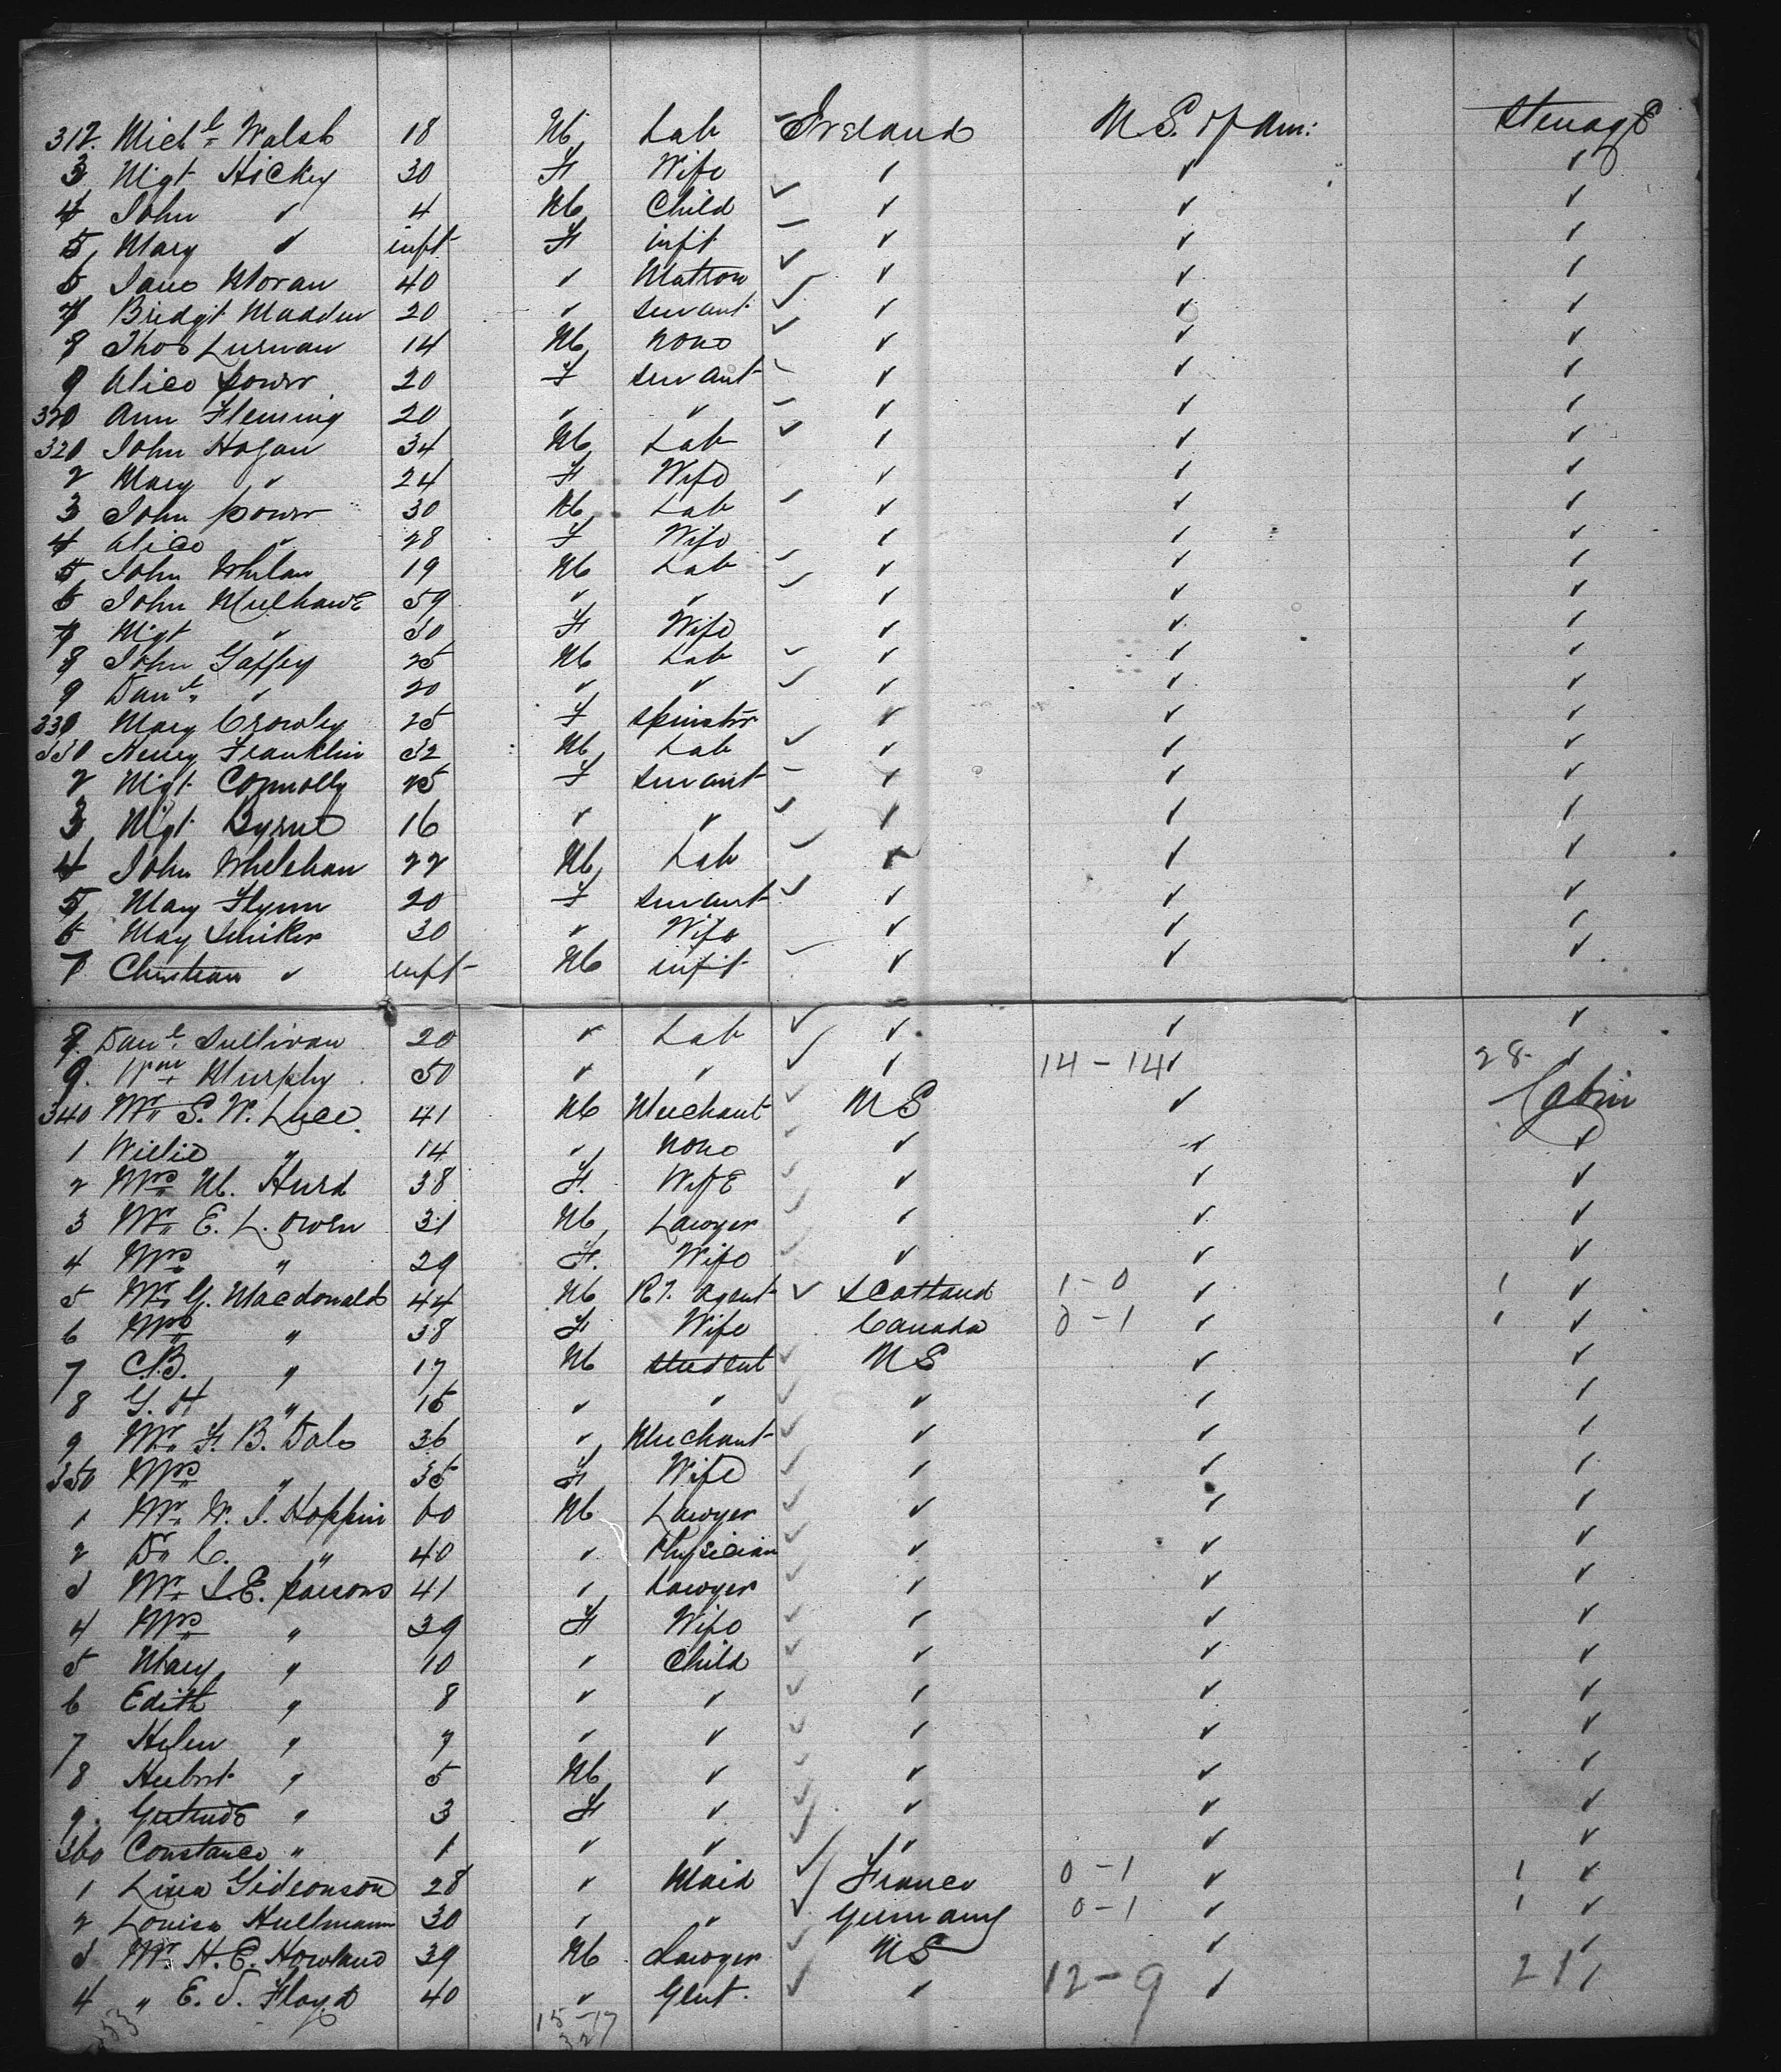 312. Mich.l Walsh 18 M Lab Ireland U S. of Am: Steerage
3 Mgt Hickey 30 F Wife ✓ ✓ ✓
4 John ✓ 4 M Child ✓ ✓ ✓
5 Mary ✓ inft F inft ✓ ✓ ✓
6 Jane Moran 40 ✓ Matron ✓ ✓ ✓
7 Bridgt Madden 20 ✓ Servant ✓ ✓ ✓
8 Thos 14 M none ✓ ✓ ✓
9 Alice Power 20 F Servant ✓ ✓ ✓
320 Ann Fleming 20 ✓ ✓ ✓ ✓ ✓
320 John Hogan 34 M Lab ✓ ✓ ✓
2 Mary ✓ 24 F Wife ✓ ✓ ✓
3 John Power 30 M Lab ✓ ✓ ✓
4 Alice ✓ 28 F Wife ✓ ✓ ✓
5 John Whelan 19 M Lab ✓ ✓ ✓
6 John 59 ✓ ✓ ✓ ✓ ✓
7 Mgt ✓ 50 F Wife ✓ ✓ ✓
8 John Gaffey 25 M Lab ✓ ✓ ✓
9 Dan.l ✓ 20 ✓ ✓ ✓ ✓ ✓
330 Mary Crowley 25 F Spinster ✓ ✓ ✓
330 Henry Franklin 32 M Lab ✓ ✓ ✓
2 Mgt Connolly 25 F Servant ✓ ✓ ✓
3 Mgt Byrne 16 ✓ ✓ ✓ ✓ ✓
4 John Whelehan 22 M Lab ✓ ✓ ✓
5 Mary Flynn 20 F Servant ✓ ✓ ✓
6 May 30 ✓ Wife ✓ ✓ ✓
7 Christian ✓ inft M inft ✓ ✓ ✓
8 Dan.l Sullivan 20 ✓ Lab ✓ ✓ ✓
9. Wm Murphy 50 ✓ ✓ ✓ 14 - 14 ✓ 28 ✓
340 Mr S. W. Luce 41 M Merchant U S ✓ Cabin
1 Willie " 14 ✓ none ✓ ✓ ✓
2 Mrs M. Hurd 38 F. Wife ✓ ✓ ✓
3 Mr E. L. Owen 31 M Lawyer ✓ ✓ ✓
4 Mrs " 29 F. Wife ✓ ✓ ✓
5 Mr G. Macdonald 44 M Rl. Agent Scotland 1 - 0 ✓ 1 ✓
6 Mrs " 38 F Wife Canada 0 - 1 ✓ 1 ✓
7 C.B. " 17 M Student U S ✓ ✓
8 G. H " 15 ✓ ✓ ✓ ✓ ✓
9 Mr F. B. Dale 36 ✓ Merchant ✓ ✓ ✓
350 Mrs " 35 F Wife ✓ ✓ ✓
1 Mr W. J. Hoppin 60 M Lawyer ✓ ✓ ✓
2 Dr C. " 40 ✓ Physician ✓ ✓ ✓
3 Mr J. E. Parsons 41 ✓ Lawyer ✓ ✓ ✓
4 Mrs " 39 F Wife ✓ ✓ ✓
5 Mary " 10 ✓ Child ✓ ✓ ✓
6 Edith " 8 ✓ ✓ ✓ ✓ ✓
7 Helen " 7 ✓ ✓ ✓ ✓ ✓
8 Hubrt " 5 M ✓ ✓ ✓ ✓
9. Gertrude " 3 F ✓ ✓ ✓ ✓
360 Constance " 1 ✓ ✓ ✓ ✓ ✓
1 Lina Gideonson 28 ✓ Maid France 0 - 1 ✓ 1 ✓
2 Louisa Hullmann 30 ✓ ✓ Germany 0 - 1 ✓ 1 ✓
3 Mr. H. E. Howland 39 M Lawyer U S ✓ ✓
4 " E. S. Floyd 40 ✓ Gent. ✓ 12 - 9 ✓ 21 ✓
15 - 17